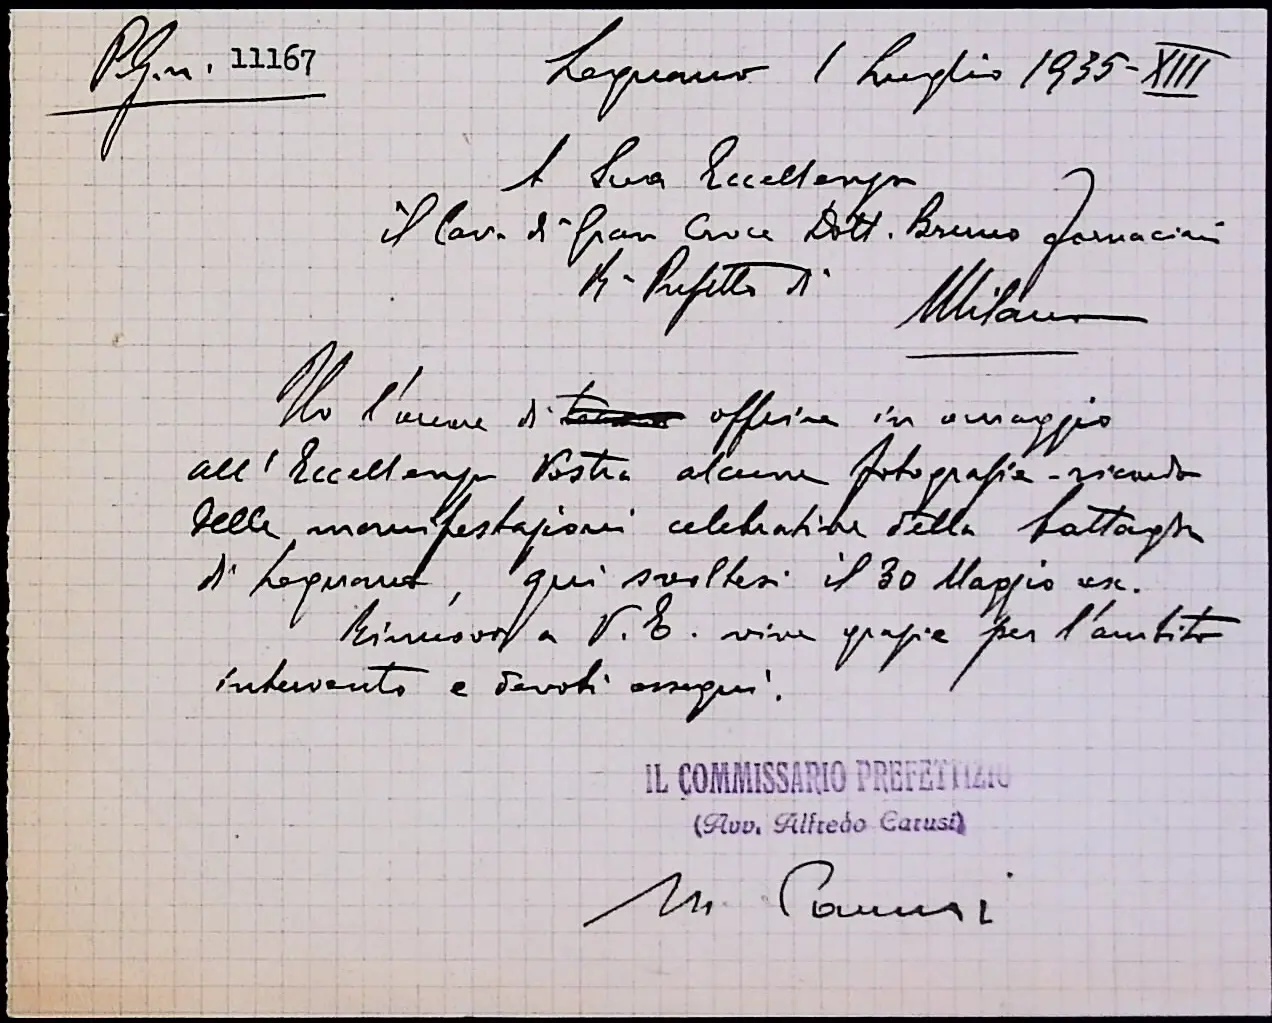 P.G.n. 11167
Legnano 1 Luglio 1935-XIII
A Sua Eccellenza
il Cav. di Gran Croce Dott. Bruno Fornaciari
R. Prefetto di
Milano
Ho l'onore di offrire in omaggio
all'Eccellenza Vostra alcune fotografie-ricordo
delle manifestazioni celebrative della battaglia
di Legnano, qui svoltesi il 30 Maggio us.
Rinnovo a V.E. vive grazie per l'ambito
intervento e devoti ossequi.
IL COMMISSARIO PREFETTIZIO
(Avv. Alfredo Carusi)